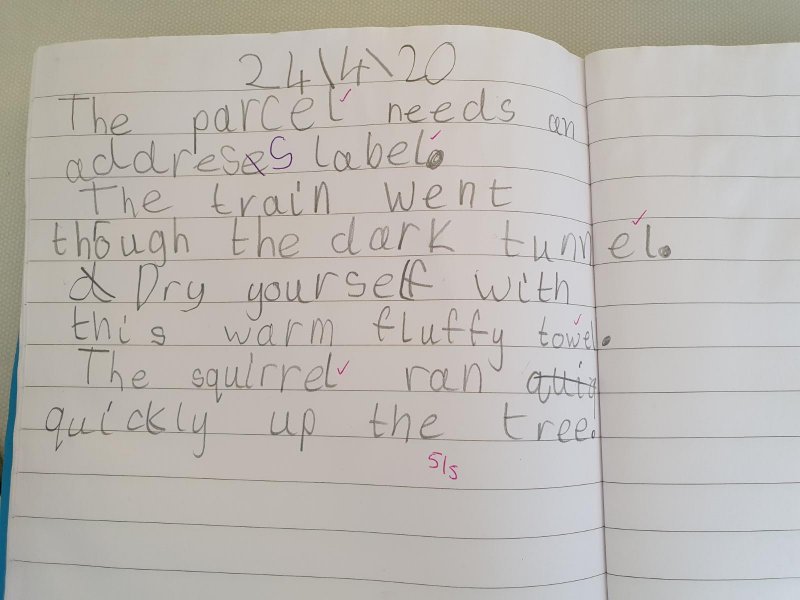 24\4\20
The parcel needs an
address label.
The train went
though the dark tunnel.
Dry yourself with
this warm fluffy towel.
The squirrel ran
quickly up the tree.
5/5